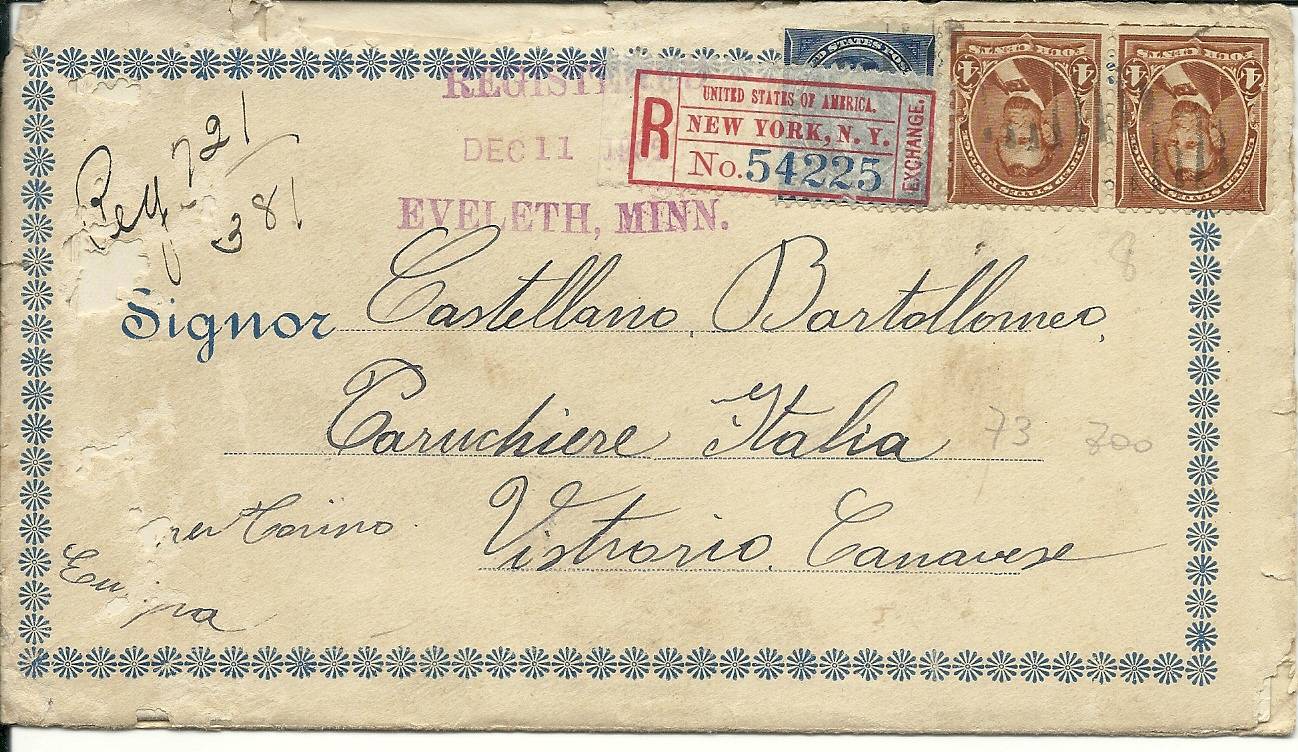 REGIST
DEC 11
EVELETH, MINN.
R
UNITED STATES OF AMERICA.
NEW YORK, N. Y.
No. 54225
EXCHANGE.
D STATES POS
FOUR CENTS
4 4
FOUR CENTS
4 4
Reg 721
381
8
Signor Castellano Bartollomeo,
Paruchiere Italia
73 700
per Torino
Vistrorio. Canavese